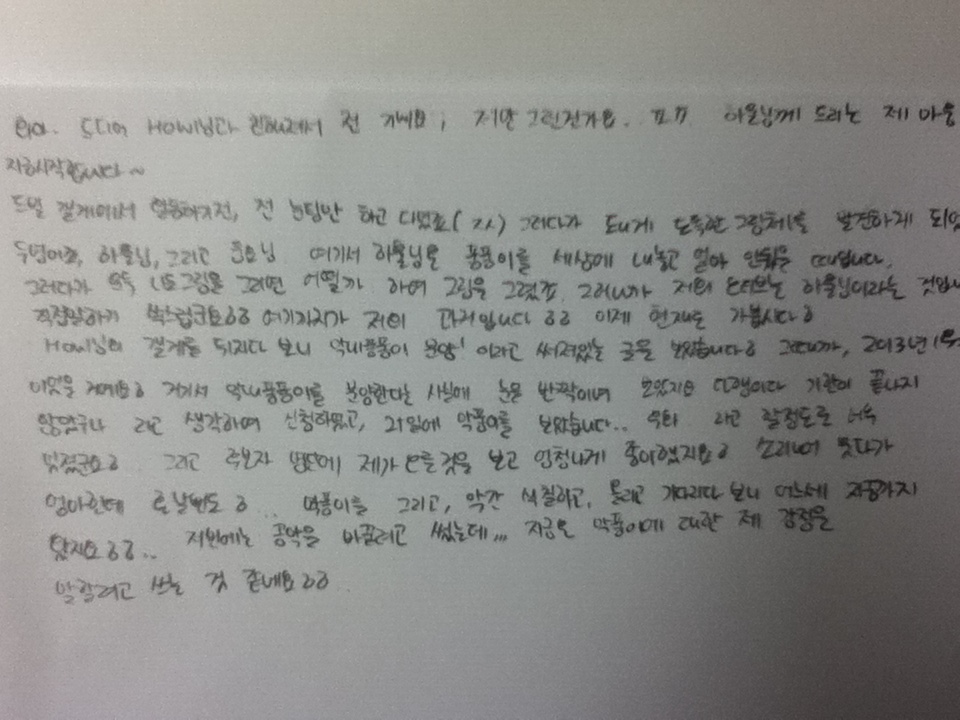 드디어 Howl님과 친해져서 전 기뻐요; 저만 그런건가요. ㅠㅠ 하울님께 드리는 제 마음
지금시작합니다~
드넓 갤게에서 활동하기전, 전 눈팅만 하고 다녔죠( ) 그러다가 독특한 그림체를 발견하게 되었
두명이죠, 하울님, 그리고 님. 여기서 하울님은 풍풍이를 세상에 내놓고 얼마 안됬을 때입니다.
그러다가 나도 그림을 그리면 어떨까 하여 그림을 그렸죠. 그러니까 저의 는 하울님이라는 것입니
직접말하기 쑥스럽군요ㅎㅎ 여기까지가 저의 과거입니다ㅎㅎ 이제 현재로 가봅시다ㅎ
Howl님의 갤게를 뒤지다 보니 막내풍풍이 분양! 이라고 써져있는 글을 보았습니다ㅎ 그때가, 2013년 1월
이었을 거에요ㅎ 거기서 막내풍풍이를 분양한다는 사실에 눈을 반짝이며 보았지요 기한이 끝나지
않았구나 라고 생각하여 신청하였고, 21일에 막풍이를 보았습니다.. 라고 할정도로 너무
멋졌군요ㅎ 그리고 후보자 명단에 제가 것을 보고 엄청나게 좋아했지요ㅎ 소리내어 웃다가
엄마한테 혼날뻔도ㅎ... 막풍이를 그리고, 약간 색칠하고, 올리고 기다리다 보니 어느세 지금까지
왔지요ㅎㅎ.. 저번에는 공약을 바꿀려고 썼는데,,, 지금은 막풍이에 대한 제 감정을
말할려고 쓰는 것 같네요ㅎㅎ